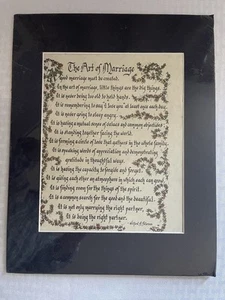 The Art of Marriage
Good marriage must be created.
In the art of marriage, little things are the big things.
It is never being too old to hold hands.
It is remembering to say "I love you" at least once each day.
It is never going to sleep angry.
It is having a mutual sense of values and common objectives.
It is standing together facing the world.
It is forming a circle of love that gathers in the whole family.
It is speaking words of appreciation and demonstrating
gratitude in thoughtful ways.
It is having the capacity to forgive and forget.
It is giving each other an atmosphere in which each can grow.
It is finding room for the things of the spirit.
It is a common search for the good and the beautiful.
It is not only marrying the right partner,
It is being the right partner.